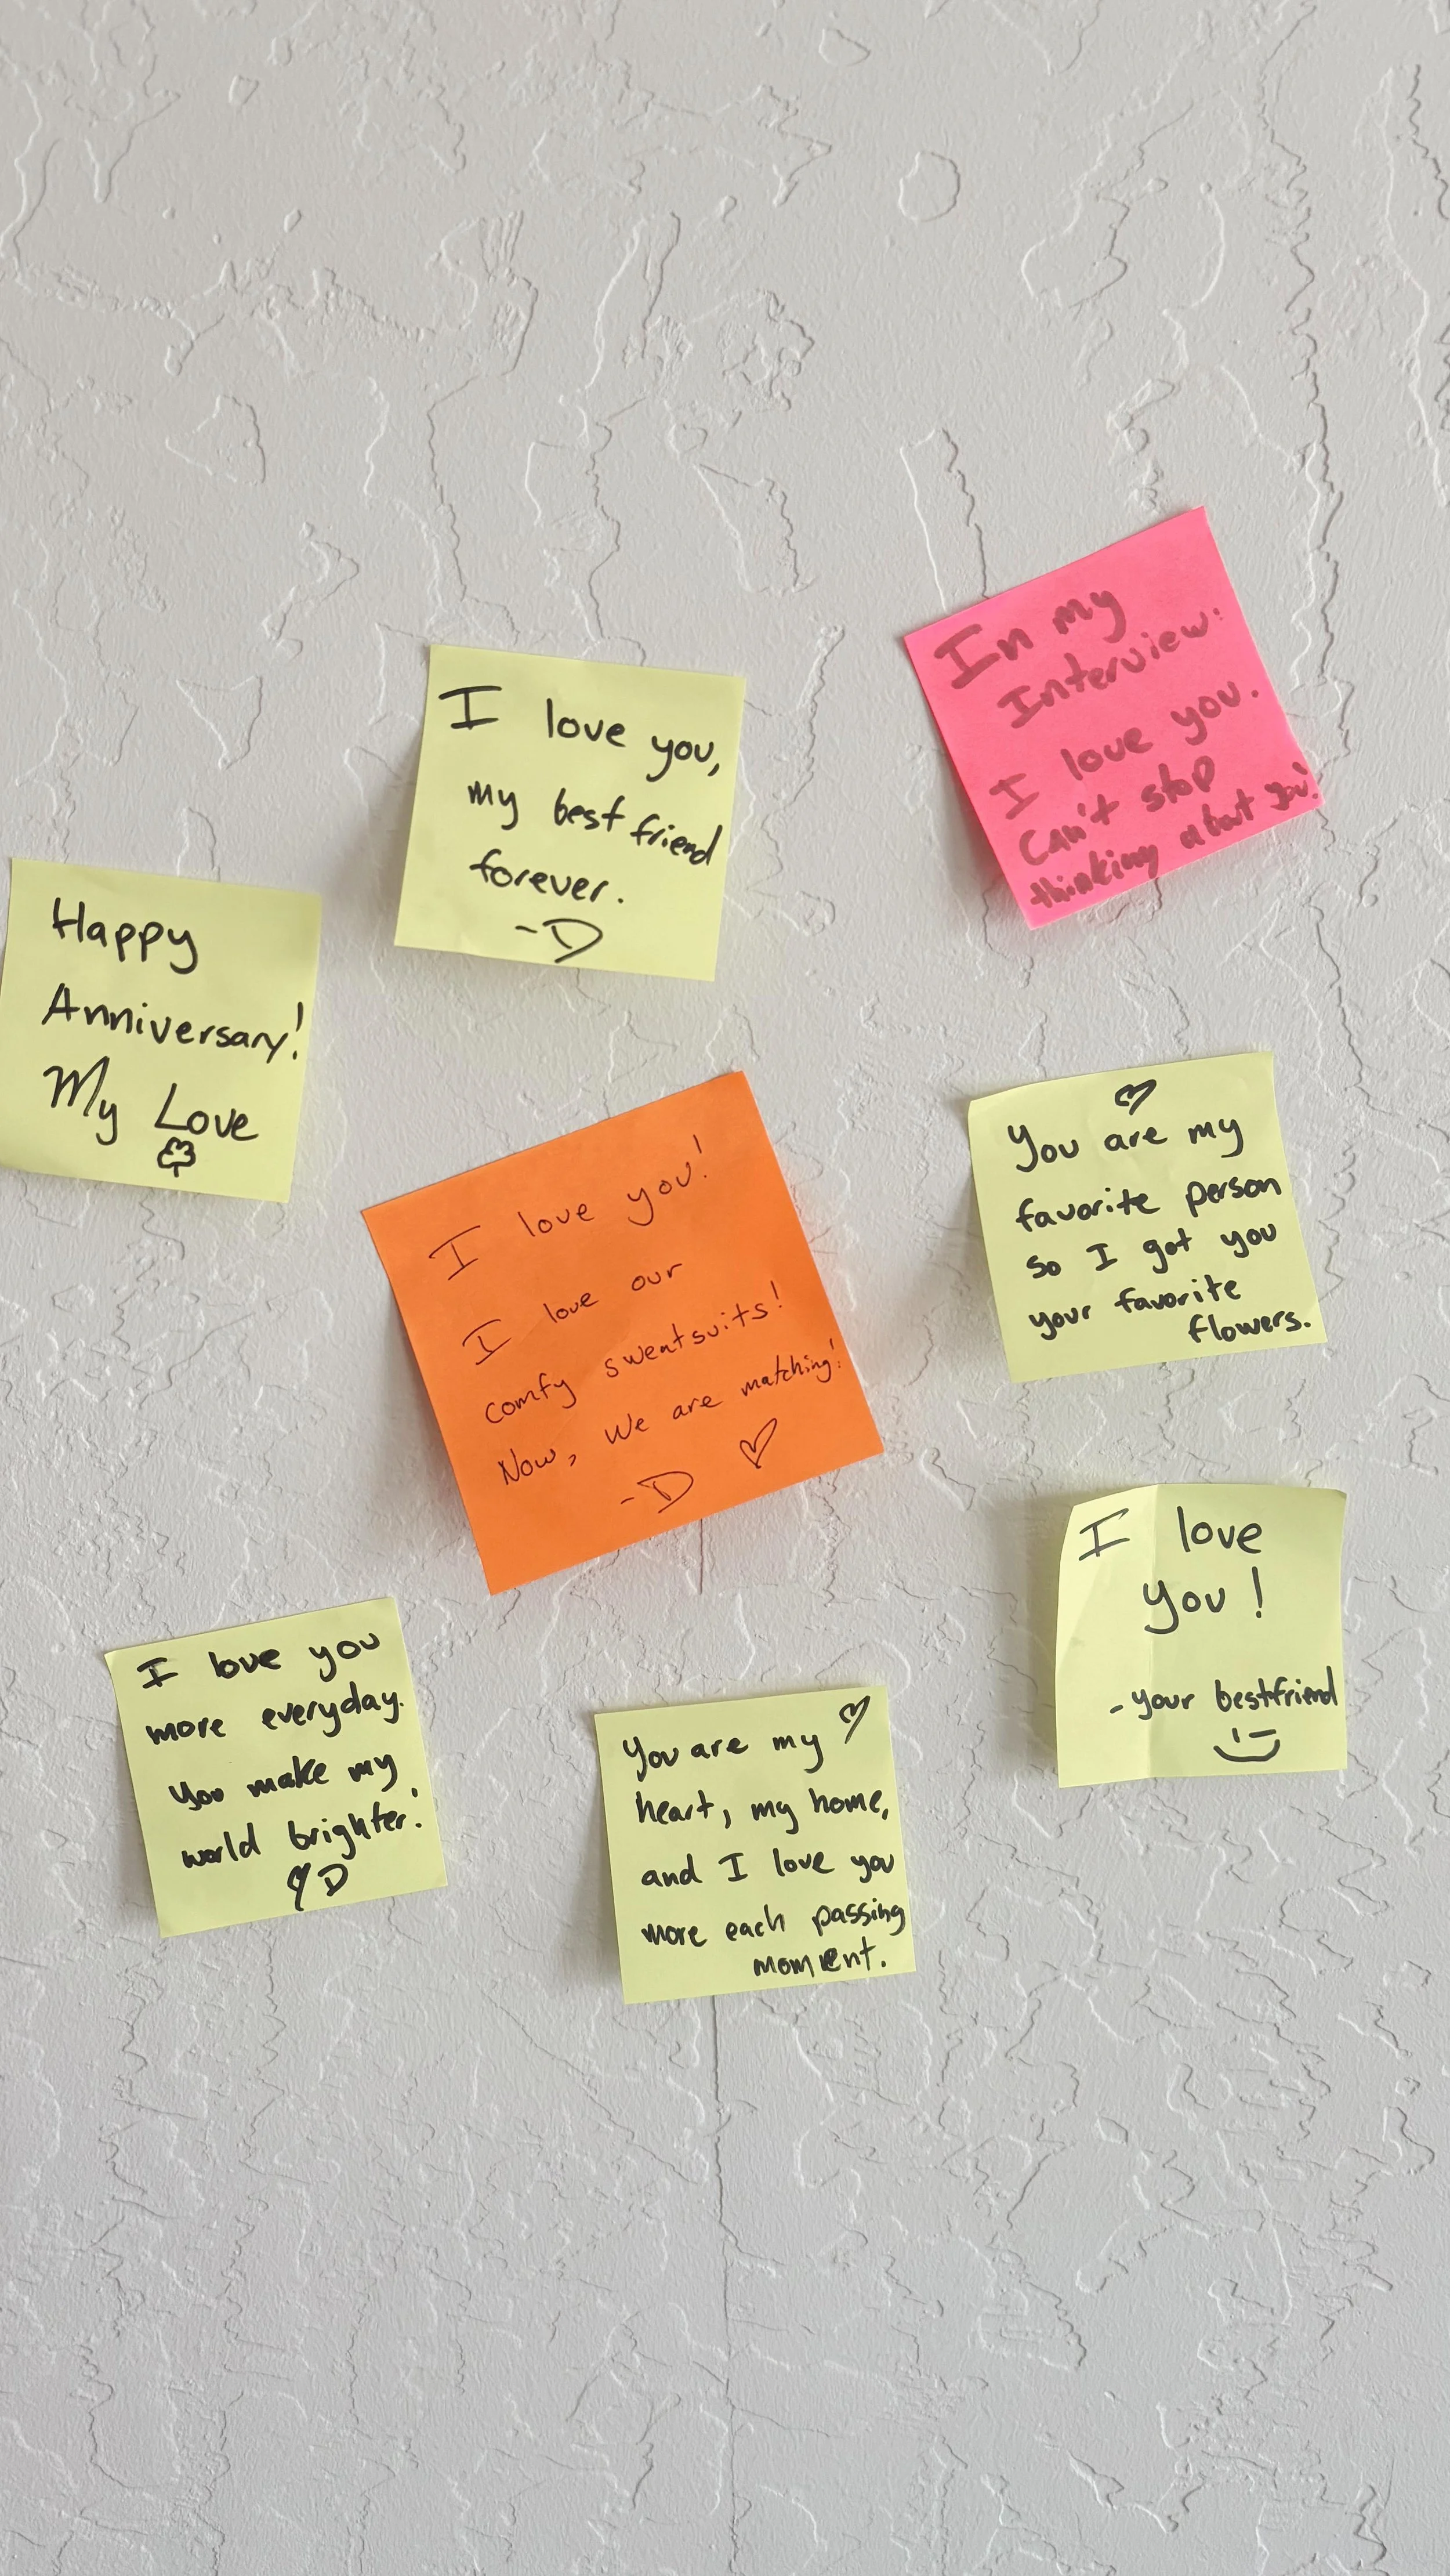 In my
Interview:
I love you.
Can't stop
thinking about you!
I love you,
my best friend
forever.
-D
Happy
Anniversary!
My Love
You are my
favorite person
so I got you
your favorite
flowers.
I love you!
I love our
comfy sweatsuits!
Now, we are matching!
-D
I love
you!
-your bestfriend
I love you
more everyday.
You make my
world brighter!
D
You are my
heart, my home,
and I love you
more each passing
moment.